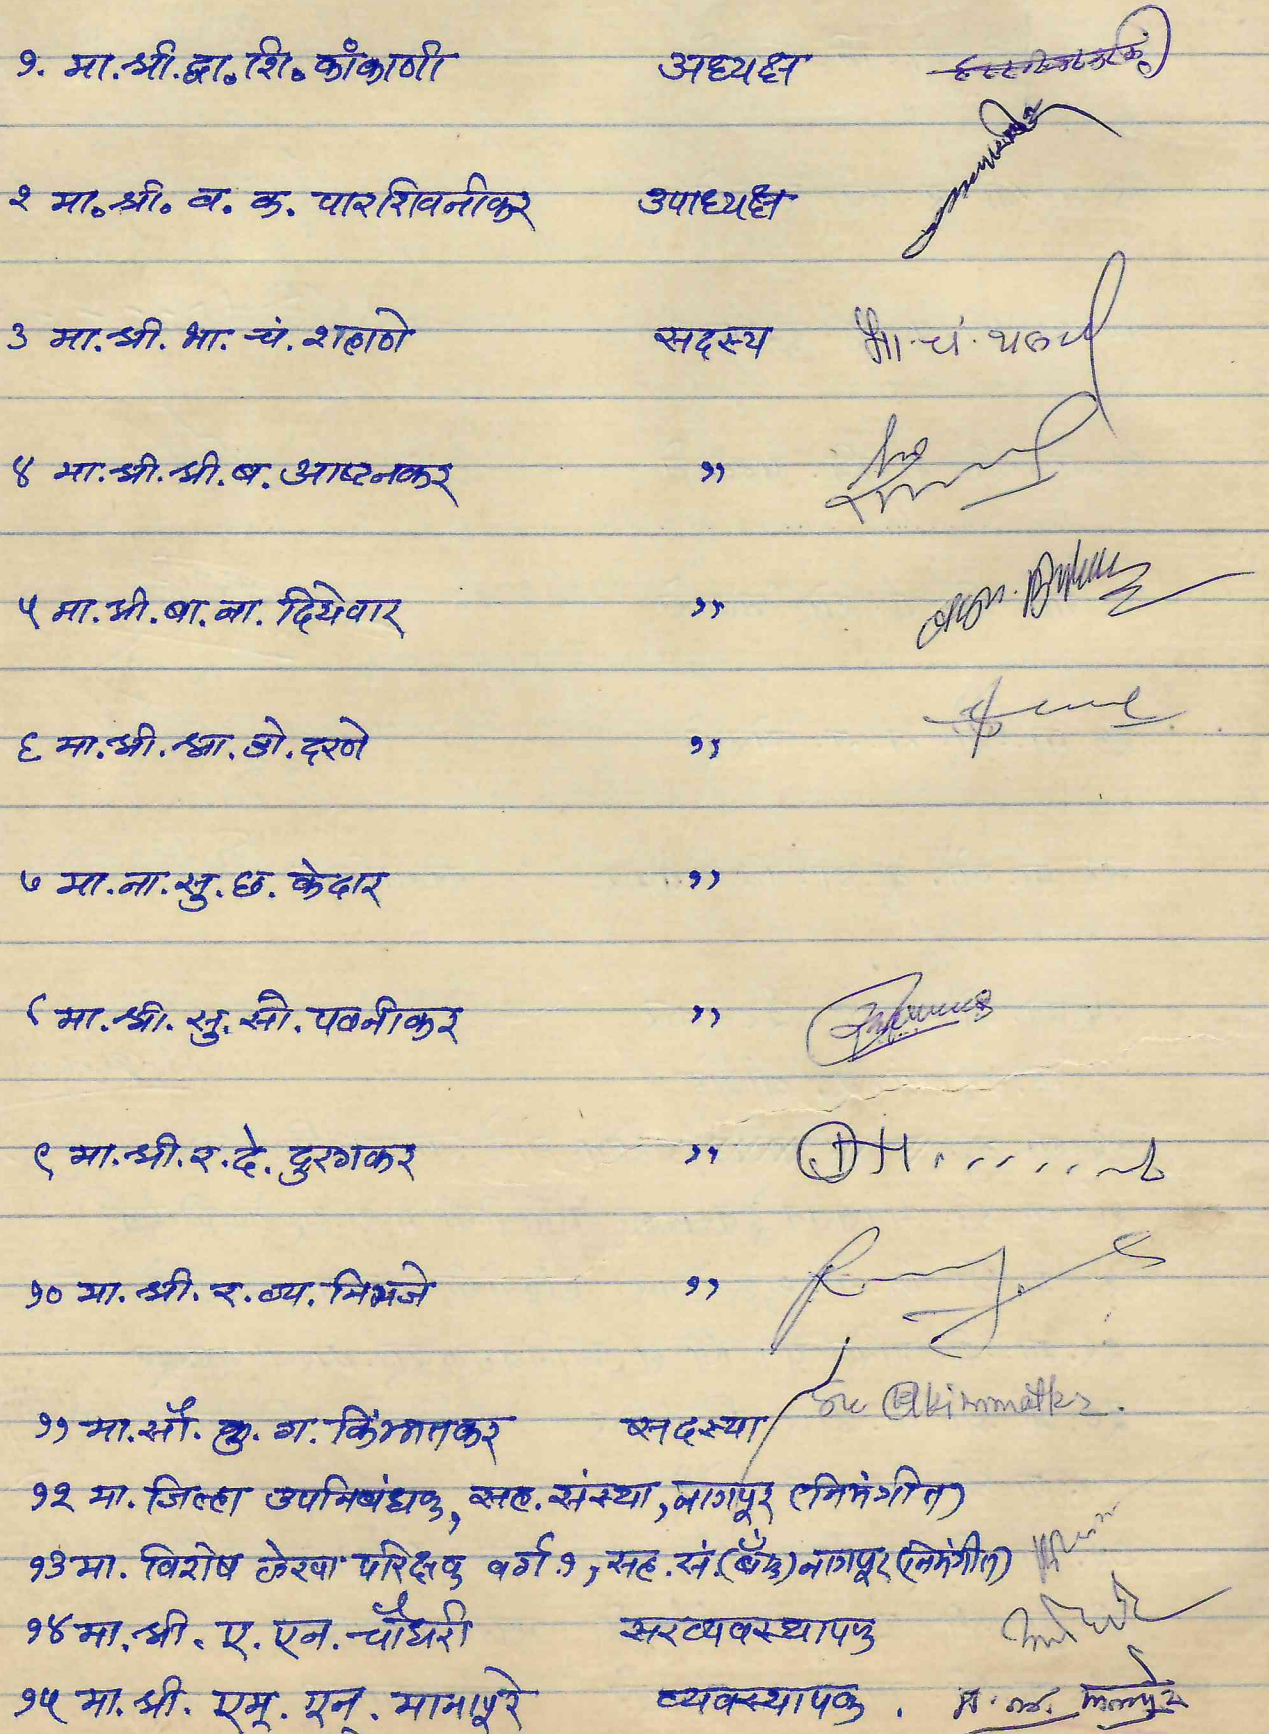 १. मा.श्री.द्वा.शि.कांकाणी अध्यक्ष
२ मा.श्री. व. क. पारशिवनीकर उपाध्यक्ष
३ मा.श्री. भा. चं. शहाणे सदस्य भा. चं. शहाणे
४ मा.श्री.श्री.ब. आष्टनकर "
५ मा.श्री.बा.ना. दियेवार "
६ मा.श्री.श्रा.को.दरणे "
७ मा.ना.सु.छ. केदार "
८ मा.श्री.सु.सो.पवनीकर "
९ मा.श्री.र.दे.दुरुगकर "
१० मा.श्री.र.व्य. निमजे "
११ मा.सौ. कु.ग. किंमतकर सदस्या
१२ मा. जिल्हा उपनिबंधक, सह. संस्था, नागपूर (निमंत्रीत)
१३ मा. विशेष लेखा परिक्षक वर्ग १, सह.सं.(बँक) नागपूर (निमंत्रीत)
१४ मा.श्री. ए. एन. चौधरी सरव्यवस्थापक
१५ मा.श्री. एम्. एन्. मानापूरे व्यवस्थापक.